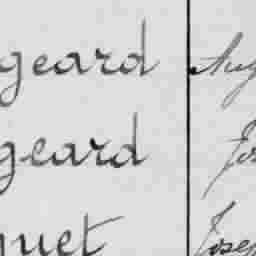 geard Aug
geard Jos
quet Josep